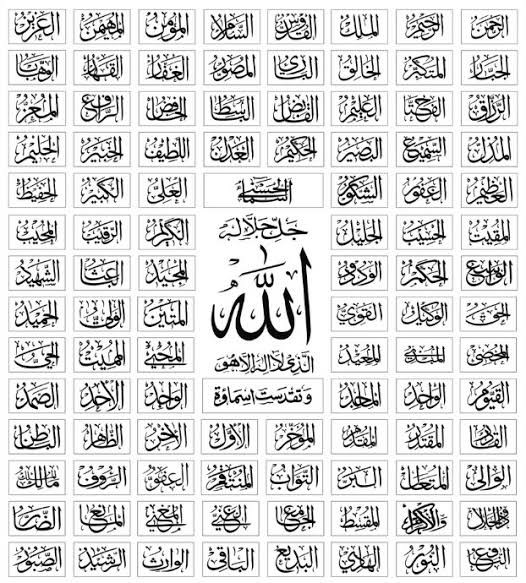 الرحمن الرحيم الملك القدوس السلام المؤمن المهيمن العزيز
الجبار المتكبر الخالق البارئ المصور الغفار القهار الوهاب
الرزاق الفتاح العليم القابض الباسط الخافض الرافع المعز
المذل السميع البصير الحكيم العدل اللطيف الخبير الحليم
العظيم الغفور الشكور الأسماء الحسنى العلي الكبير الحفيظ
المقيت الحسيب الجليل جل جلاله الكريم الرقيب المجيب
الواسع الحكيم الودود الله المجيد الباعث الشهيد
الحق الوكيل القوي المتين الولي الحميد
المحصي المبدئ المعيد الذي لا إله إلا هو المحيي المميت الحي
القيوم الواجد الماجد وتقدست اسماؤه الواحد الأحد الصمد
القادر المقتدر المقدم المؤخر الأول الآخر الظاهر الباطن
الوالي المتعال البر التواب المنتقم العفو الرؤوف مالك الملك
ذو الجلال والإكرام المقسط الجامع الغني المغني المانع الضار
النافع النور الهادي البديع الباقي الوارث الرشيد الصبور